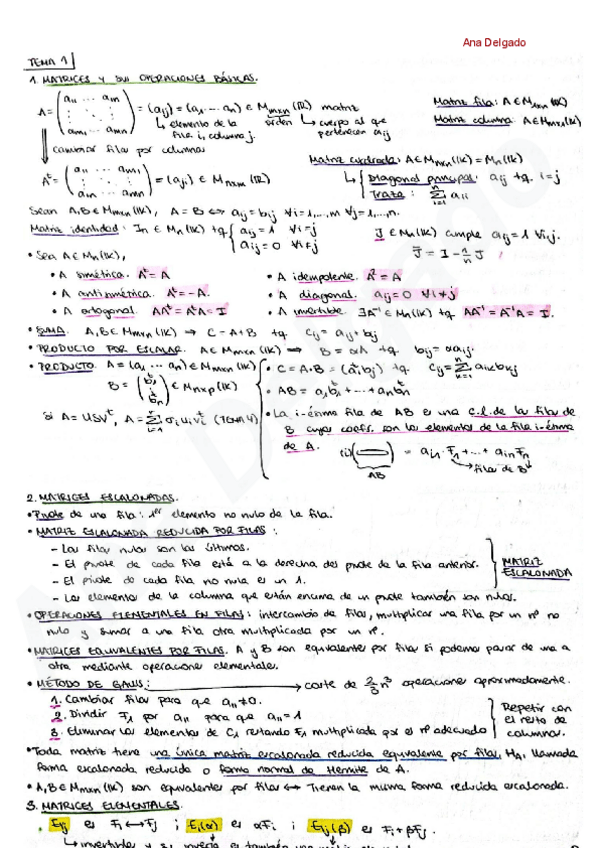 Ana Delgado
TEMA 1
1. MATRICES Y SUS OPERACIONES BÁSICAS.
A = (a11 ... a1n ⋮ ⋱ ⋮ am1 ... amn) = (aij) = (a1 ... an) ∈ Mmxn (IR) matriz
Matriz fila: A ∈ M1xn (IK)
↳ elemento de la fila i, columna j.
orden
↳ cuerpo al que pertenecen aij
Matriz columna: A ∈ Mmx1(IK)
cambiar filas por columnas
Aᵗ = = (aji) ∈ Mnxm (IR)
Matriz cuadrada: A ∈ Mnxn(IK) = Mn(IK)
↳ Diagonal principal: aij tq. i=j
Traza: Σ aii
Sean A,B ∈ Mmxn (IK), A = B ⟺ aij = bij ∀i=1,...,m ∀j=1,...,n.
Matriz identidad: In ∈ Mn (IK) tq { aij = 1 ∀i=j
aij = 0 ∀i≠j
J ∈ Mn(IK) cumple aij = 1 ∀i,j.
J̄ = I - 1/n J
• Sea A ∈ Mn(IK),
• A simétrica. Aᵗ = A
• A idempotente. A² = A
• A antisimétrica. Aᵗ = -A.
• A diagonal. aij = 0 ∀i≠j
• A ortogonal. AAᵗ = AᵗA = I
• A invertible. ∃A⁻¹ ∈ Mn(IK) tq AA⁻¹ = A⁻¹A = I.
• SUMA. A,B ∈ Mmxn (IK) ⟹ C = A+B tq cij = aij + bij
• PRODUCTO POR ESCALAR. A ∈ Mmxn (IK) ⟹ B = αA tq. bij = αaij.
• PRODUCTO. A = (a1 ... an) ∈ Mmxn(IK)
B = (b1ᵗ ⋮ bnᵗ) ∈ Mnxp(IK)
• C = A·B = (aiᵗbj) tq cij = Σ aik bkj
• AB = a1b1ᵗ + ... + anbnᵗ
Si A = USVᵗ, A = Σ σi ui viᵗ (TEMA 4)
• La i-ésima fila de AB es una c.l. de las filas de
B cuyos coefs. son los elementos de la fila i-ésima
de A.
(i) = ai1 · F1 + ... + ain Fn
AB
↳ filas de B
2. MATRICES ESCALONADAS.
• Pivote de una fila: 1er elemento no nulo de la fila.
• MATRIZ ESCALONADA REDUCIDA POR FILAS:
- Las filas nulas son las últimas.
- El pivote de cada fila está a la derecha del pivote de la fila anterior.
- El pivote de cada fila no nula es un 1.
- Los elementos de la columna que están encima de un pivote también son nulos.
MATRIZ ESCALONADA
• OPERACIONES ELEMENTALES EN FILAS: intercambio de filas, multiplicar una fila por un nº no
nulo y sumar a una fila otra multiplicada por un nº.
• MATRICES EQUIVALENTES POR FILAS. A y B son equivalente por filas si podemos pasar de una a
otra mediante operaciones elementales.
• MÉTODO DE GAUSS: → coste de 2/3 n³ operaciones aproximadamente.
1. Cambiar filas para que a11 ≠ 0.
2. Dividir F1 por a11 para que a11 = 1
3. Eliminar los elementos de C1 restando F1 multiplicada por el nº adecuado
Repetir con el resto de columnas.
• Toda matriz tiene una única matriz escalonada reducida equivalente por filas, HA, llamada
forma escalonada reducida o forma normal de Hermite de A.
• A,B ∈ Mmxn (IK) son equivalentes por filas ⟷ Tienen la misma forma reducida escalonada.
3. MATRICES ELEMENTALES.
• Eij es Fi ↔ Fj ; Ei(α) es αFi ; Eij(β) es Fi + βFj.